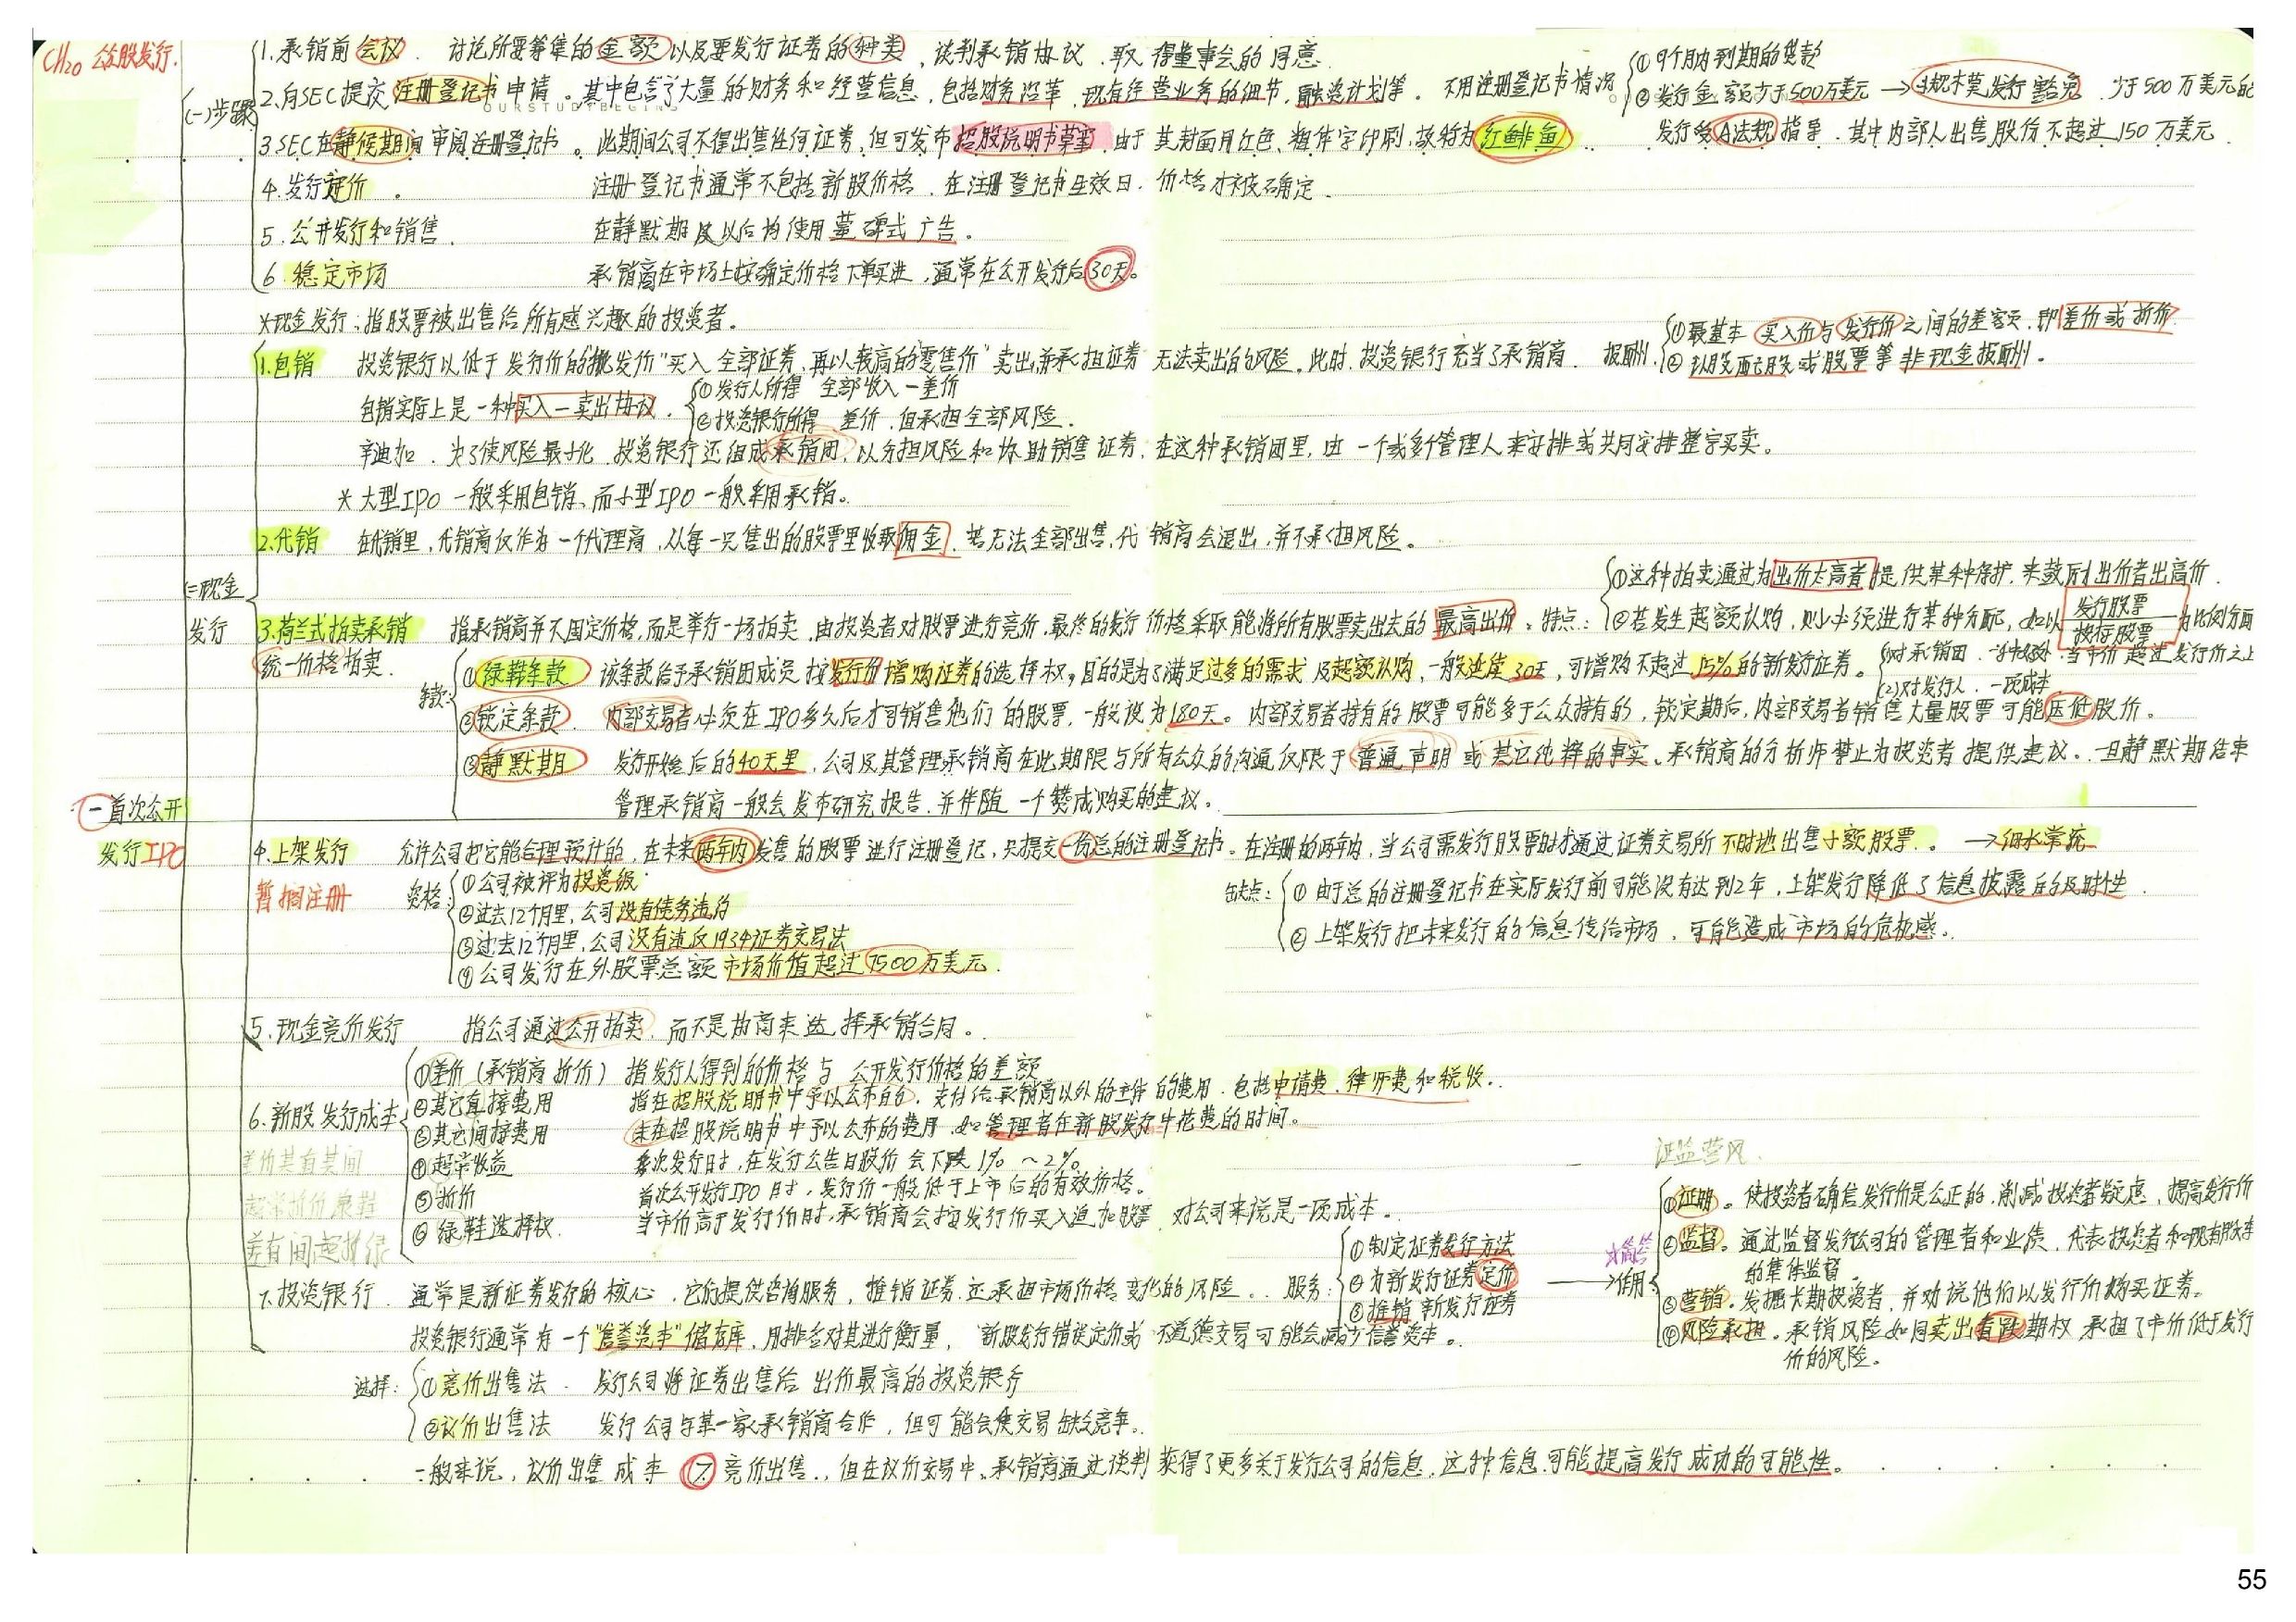 CH20 公股发行.
(一)步骤
1.承销前会议. 讨论所要筹集的金额以及要发行证券的种类,谈判承销协议.取得董事会的同意.
2.向SEC提交注册登记书申请。其中包含了大量的财务和经营信息,包括财务沿革,现有经营业务的细节,融资计划等。 不用注册登记书情况
①9个月内到期的贷款
②发行金额少于500万美元→小规模发行豁免 少于500万美元的
发行受A法规指导.其中内部人出售股份不超过150万美元.
OURSTUDYBEGINS
3.SEC在静候期间审阅注册登记书。此期间公司不得出售任何证券,但可发布招股说明书草案.由于其封面用红色、粗体字印刷,故称为红鲱鱼
4.发行定价. 注册登记书通常不包括新股价格.在注册登记书生效日.价格才被确定.
5.公开发行和销售. 在静默期及以后均使用墓碑式广告。
6.稳定市场 承销商在市场上按确定价格下单买进,通常在公开发行后30天。
*现金发行:指股票被出售给所有感兴趣的投资者。
(二)现金
发行
1.包销 投资银行以低于发行价的"批发价"买入全部证券,再以较高的"零售价"卖出,并承担证券无法卖出的风险。此时,投资银行充当了承销商. 报酬.
①最基本 买入价与发行价之间的差额.即差价或折价
②认股配股或股票等非现金报酬。
包销实际上是一种买入—卖出协议.
①发行人所得 全部收入—差价
②投资银行所得 差价.但承担全部风险.
辛迪加.为了使风险最小化.投资银行还组成承销团,以分担风险和协助销售证券,在这种承销团里,由一个或多个管理人来安排或共同安排整宗买卖。
*大型IPO一般采用包销、而小型IPO一般采用承销。
2.代销 在代销里,代销商仅作为一个代理商,从每一只售出的股票里收取佣金,若无法全部出售,代销商会退出,并不承担风险。
3.荷兰式拍卖承销 指承销商并不固定价格,而是举行一场拍卖,由投资者对股票进行竞价,最终的发行价格采取能将所有股票卖出去的最高出价。特点:
统一价格拍卖.
①这种拍卖通过为出价太高者提供某种保护,来鼓励出价者出高价.
②若发生超额认购,则必须进行某种分配,如以 发行股票/投标股票 为比例分配
条款:
①绿鞋条款 该条款给予承销团成员按发行价增购证券的选择权,目的是为了满足过多的需求及超额认购,一般延续30天,可增购不超过15%的新发行证券。
(1)对承销团.一种收益.当市价超过发行价之上
(2)对发行人.一项成本
②锁定条款. 内部交易者必须在IPO多久后才可销售他们的股票,一般设为180天。内部交易者持有的股票可能多于公众持有的,锁定期后,内部交易者销售大量股票可能压低股价。
③静默期 发行开始后的40天里,公司及其管理承销商在此期限与所有公众的沟通仅限于普通声明或其它纯粹的事实、承销商的分析师禁止为投资者提供建议。一旦静默期结束
管理承销商一般会发布研究报告.并伴随一个赞成购买的建议。
一首次公开
发行IPO
4.上架发行 允许公司把它能合理预计的,在未来两年内发售的股票进行注册登记,只提交一份总的注册登记书。在注册的两年内,当公司需发行股票时才通过证券交易所不时地出售小额股票。→细水常流
暂搁注册
资格:
①公司被评为投资级
②过去12个月里,公司没有债务违约
③过去12个月里,公司没有违反1934证券交易法
④公司发行在外股票总额市场价值超过7500万美元.
缺点:
①由于总的注册登记书在实际发行前可能没有达到2年,上架发行降低了信息披露的及时性.
②上架发行把未来发行的信息传给市场,可能造成市场的危机感。
5.现金竞价发行 指公司通过公开拍卖,而不是协商来选择承销合同。
6.新股发行成本
①差价(承销商折价) 指发行人得到的价格与公开发行价格的差额
②其它直接费用 指在招股说明书中予以公布的,支付给承销商以外的主体的费用.包括申请费.律师费和税收.
③其它间接费用 未在招股说明书中予以公布的费用.如管理者在新股发行中花费的时间。
④超常收益 多次发行时,在发行公告日股价会下跌1%~2%
⑤折价 首次公开发行IPO时,发行价一般低于上市后的有效价格。
⑥绿鞋选择权. 当市价高于发行价时,承销商会按发行价买入追加股票.对公司来说是一项成本。
差有间超折绿
7.投资银行. 通常是新证券发行的核心.它们提供咨询服务,推销证券.还承担市场价格变化的风险。服务:
①制定证券发行方法
②为新发行证券定价
③推销新发行证券
→作用
证监营风.
①证明。使投资者确信发行价是公正的.削减投资者疑虑,提高发行价
②监督。通过监督发行公司的管理者和业绩.代表投资者和现有股东
的集体监督.
③营销.发掘长期投资者,并劝说他们以发行价购买证券。
④风险承担.承销风险如同卖出看跌期权 承担了市价低于发行
价的风险。
投资银行通常有一个"信誉资本"储存库,用排名对其进行衡量, 新股发行错误定价或不道德交易可能会减少信誉资本。
选择:
①竞价出售法. 发行公司将证券出售给出价最高的投资银行
②议价出售法 发行公司与某一家承销商合作,但可能会使交易缺乏竞争。
一般来说,议价出售成本 > 竞价出售.,但在议价交易中、承销商通过谈判获得了更多关于发行公司的信息,这种信息可能提高发行成功的可能性。
55